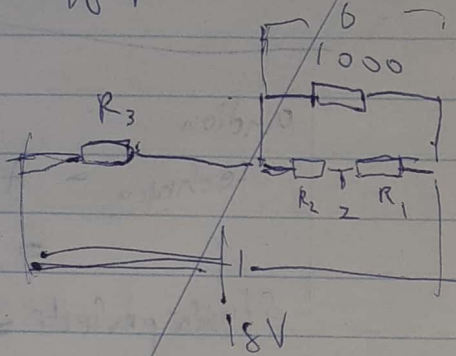 6
1000
R3
R2
2
R1
18V